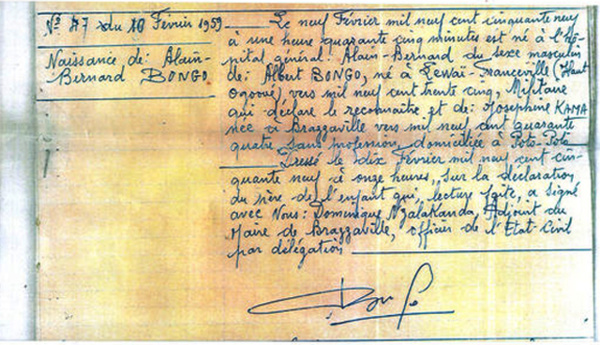 N° 47 du 10 Février 1959
Naissance de: Alain-
Bernard BONGO
Le neuf Février mil neuf cent cinquante neuf
à une heure quarante cinq minutes est né à l'hô-
pital général: Alain-Bernard du sexe masculin
de: Albert BONGO, né à Lewai-Franceville (Haut
Ogooué) vers mil neuf cent trente cinq, Militaire
qui déclare le reconnaître et de: Joséphine KAMA
née à Brazzaville vers mil neuf cent quarante
quatre sans profession, domiciliée à Poto-Poto
Dressé le dix Février mil neuf cent cin-
quante neuf à onze heures, sur la déclaration
du père de l'enfant qui, lecture faite, a signé
avec Nous: Dominique Nzalakanda, Adjoint du
Maire de Brazzaville, officier de l'Etat-Civil
par délégation